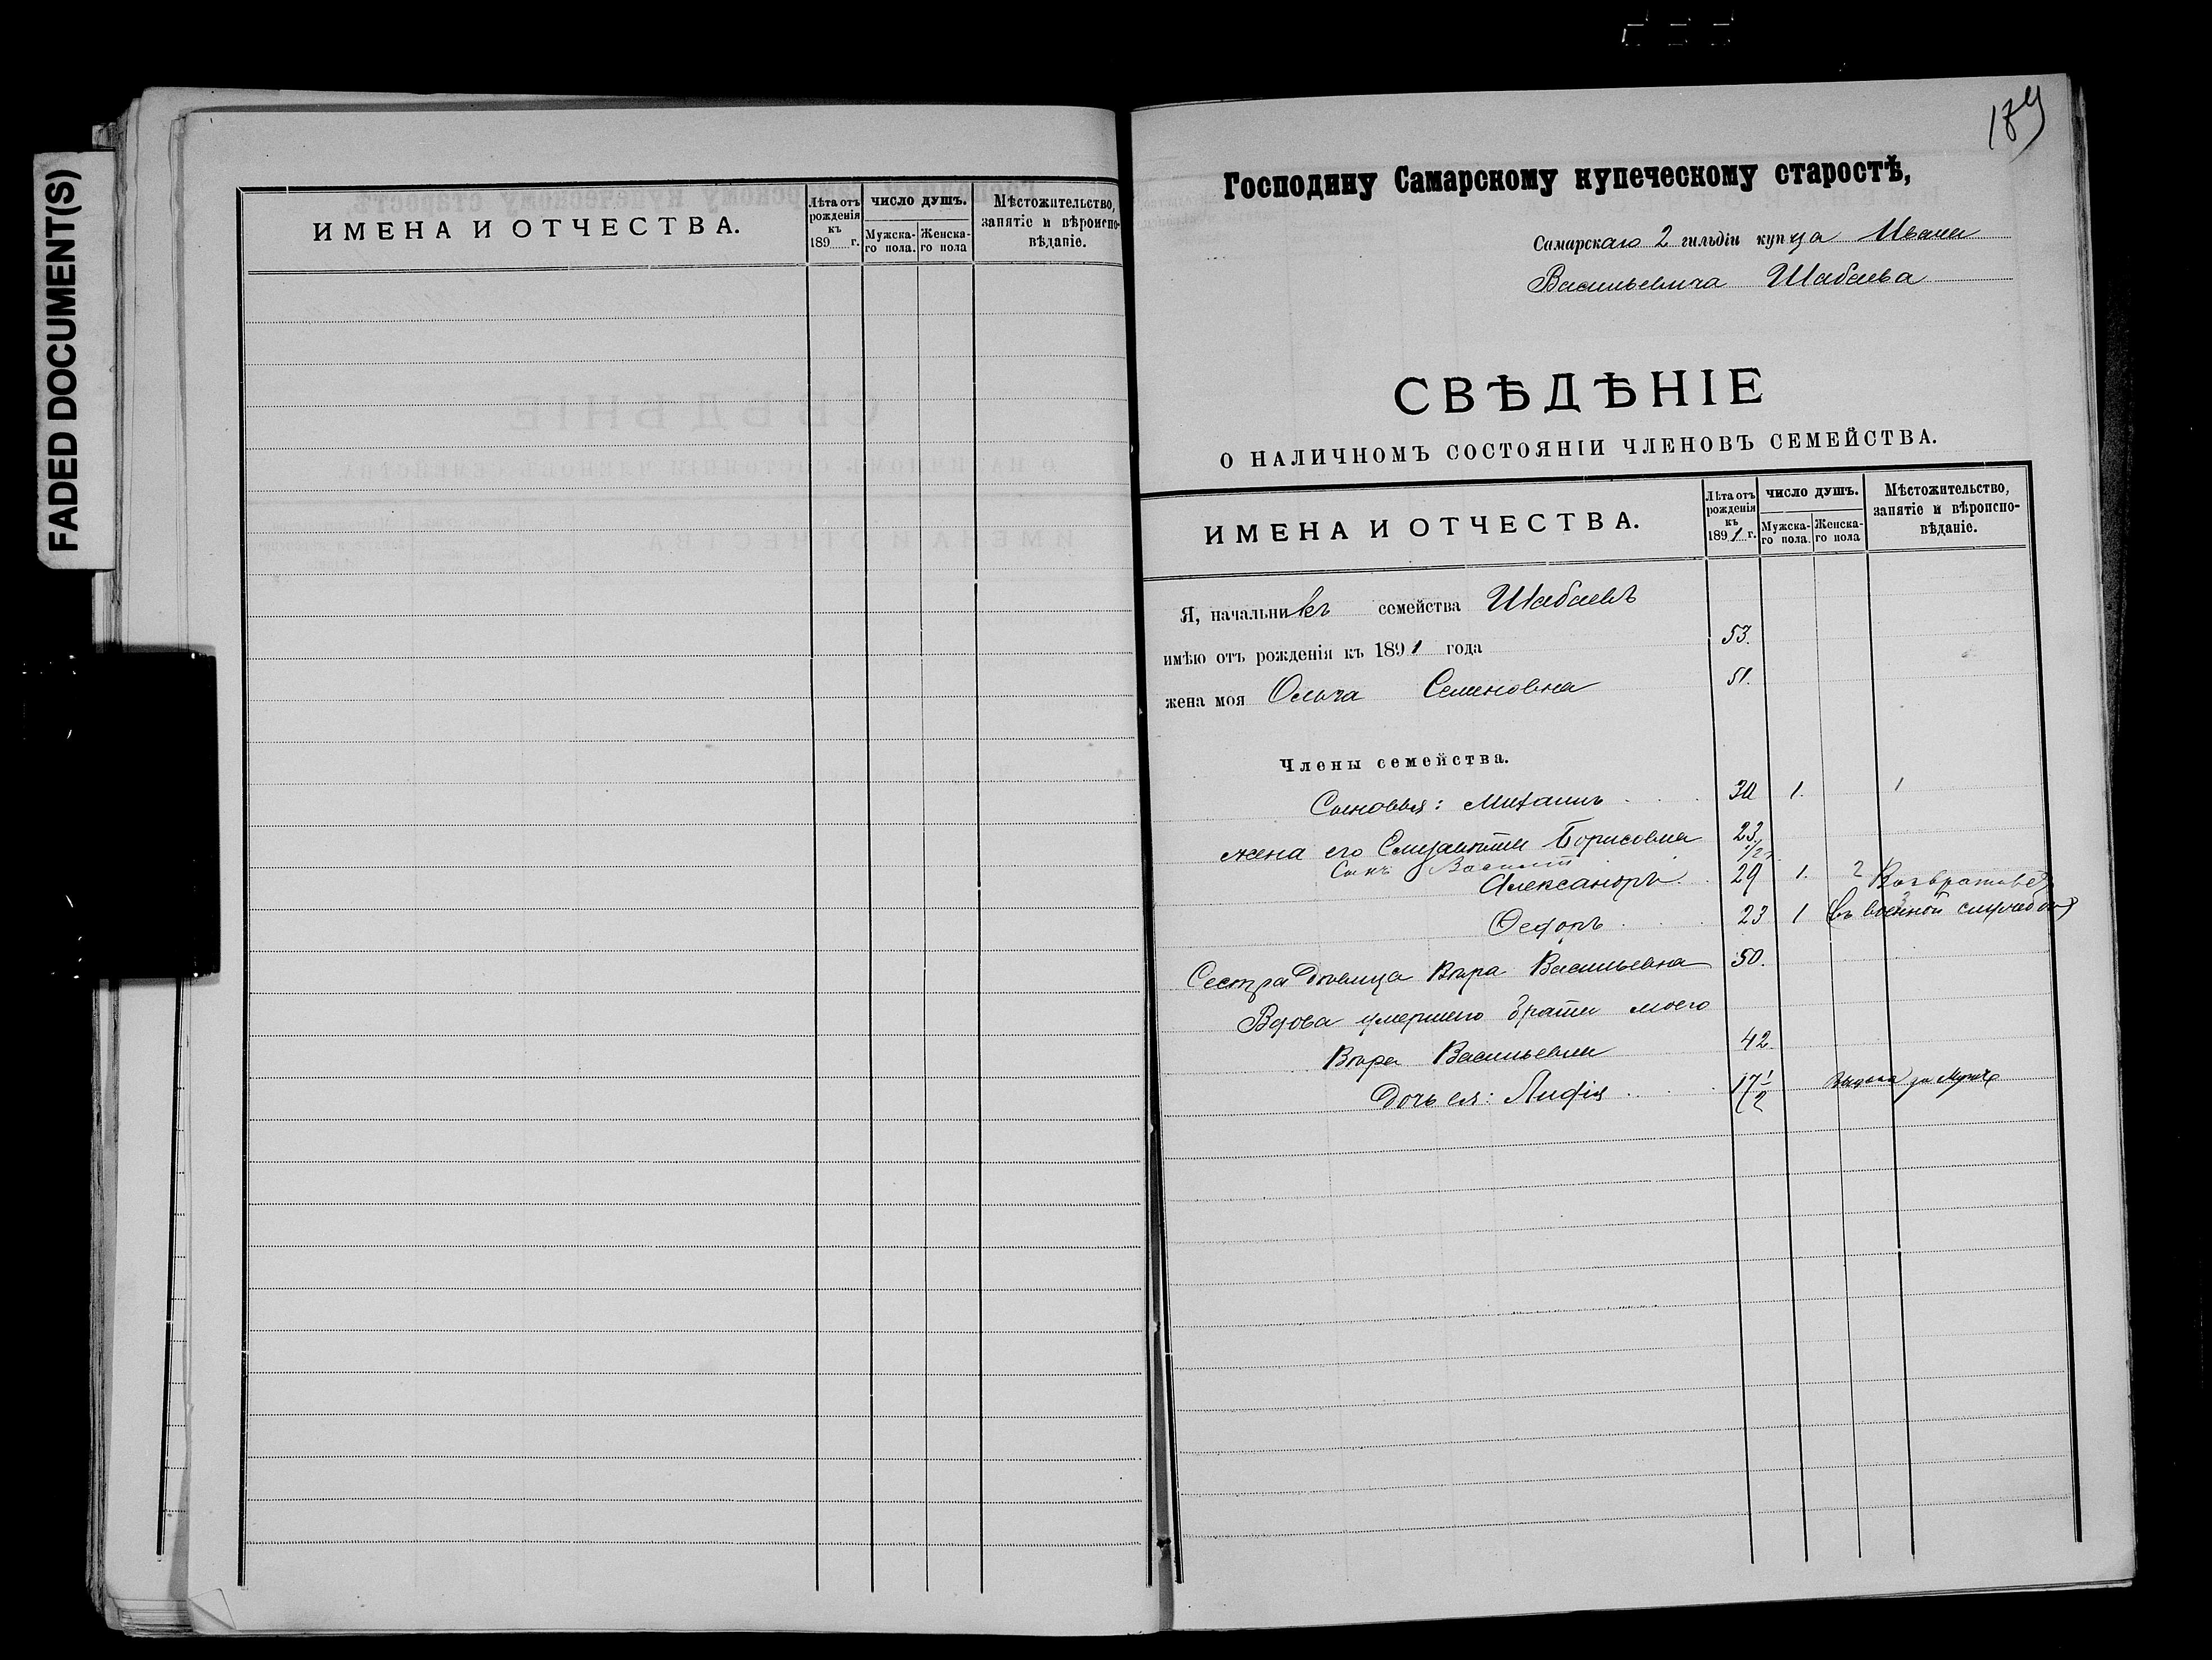 FADED DOCUMENT(S)
ИМЕНА И ОТЧЕСТВА.
Лѣта отъ рожденія къ 189 г.
ЧИСЛО ДУШЪ.
Мужска-го пола.
Женска-го пола
Мѣстожительство, занятіе и вѣроиспо-вѣданіе.
189
Господину Самарскому купеческому старостѣ,
Самарскаго 2 гильдіи купца Ивана
Васильевича Шабаева
СВѢДѢНІЕ
О НАЛИЧНОМЪ СОСТОЯНІИ ЧЛЕНОВЪ СЕМЕЙСТВА.
ИМЕНА И ОТЧЕСТВА.
Лѣта отъ рожденія къ 1891 г.
ЧИСЛО ДУШЪ.
Мужска-го пола.
Женска-го пола
Мѣстожительство, занятіе и вѣроиспо-вѣданіе.
Я, начальникъ семейства Шабаевъ
имѣю отъ рожденія къ 1891 года 53.
жена моя Ольга Семеновна 51.
Члены семейства.
Сыновья: Михаилъ 1. 1
жена его Елизавета Борисовна 23
Сынъ Василій 1/2
Александръ 29 1. 2 Возвратился
Ѳедоръ 23 1 (въ военной службѣ)
Сестра дѣвица Вѣра Васильевна 50.
Вдова умершего брата моего
Вѣра Васильевна 42.
Дочь ея: Лидія 17 1/2 вышла за мужъ